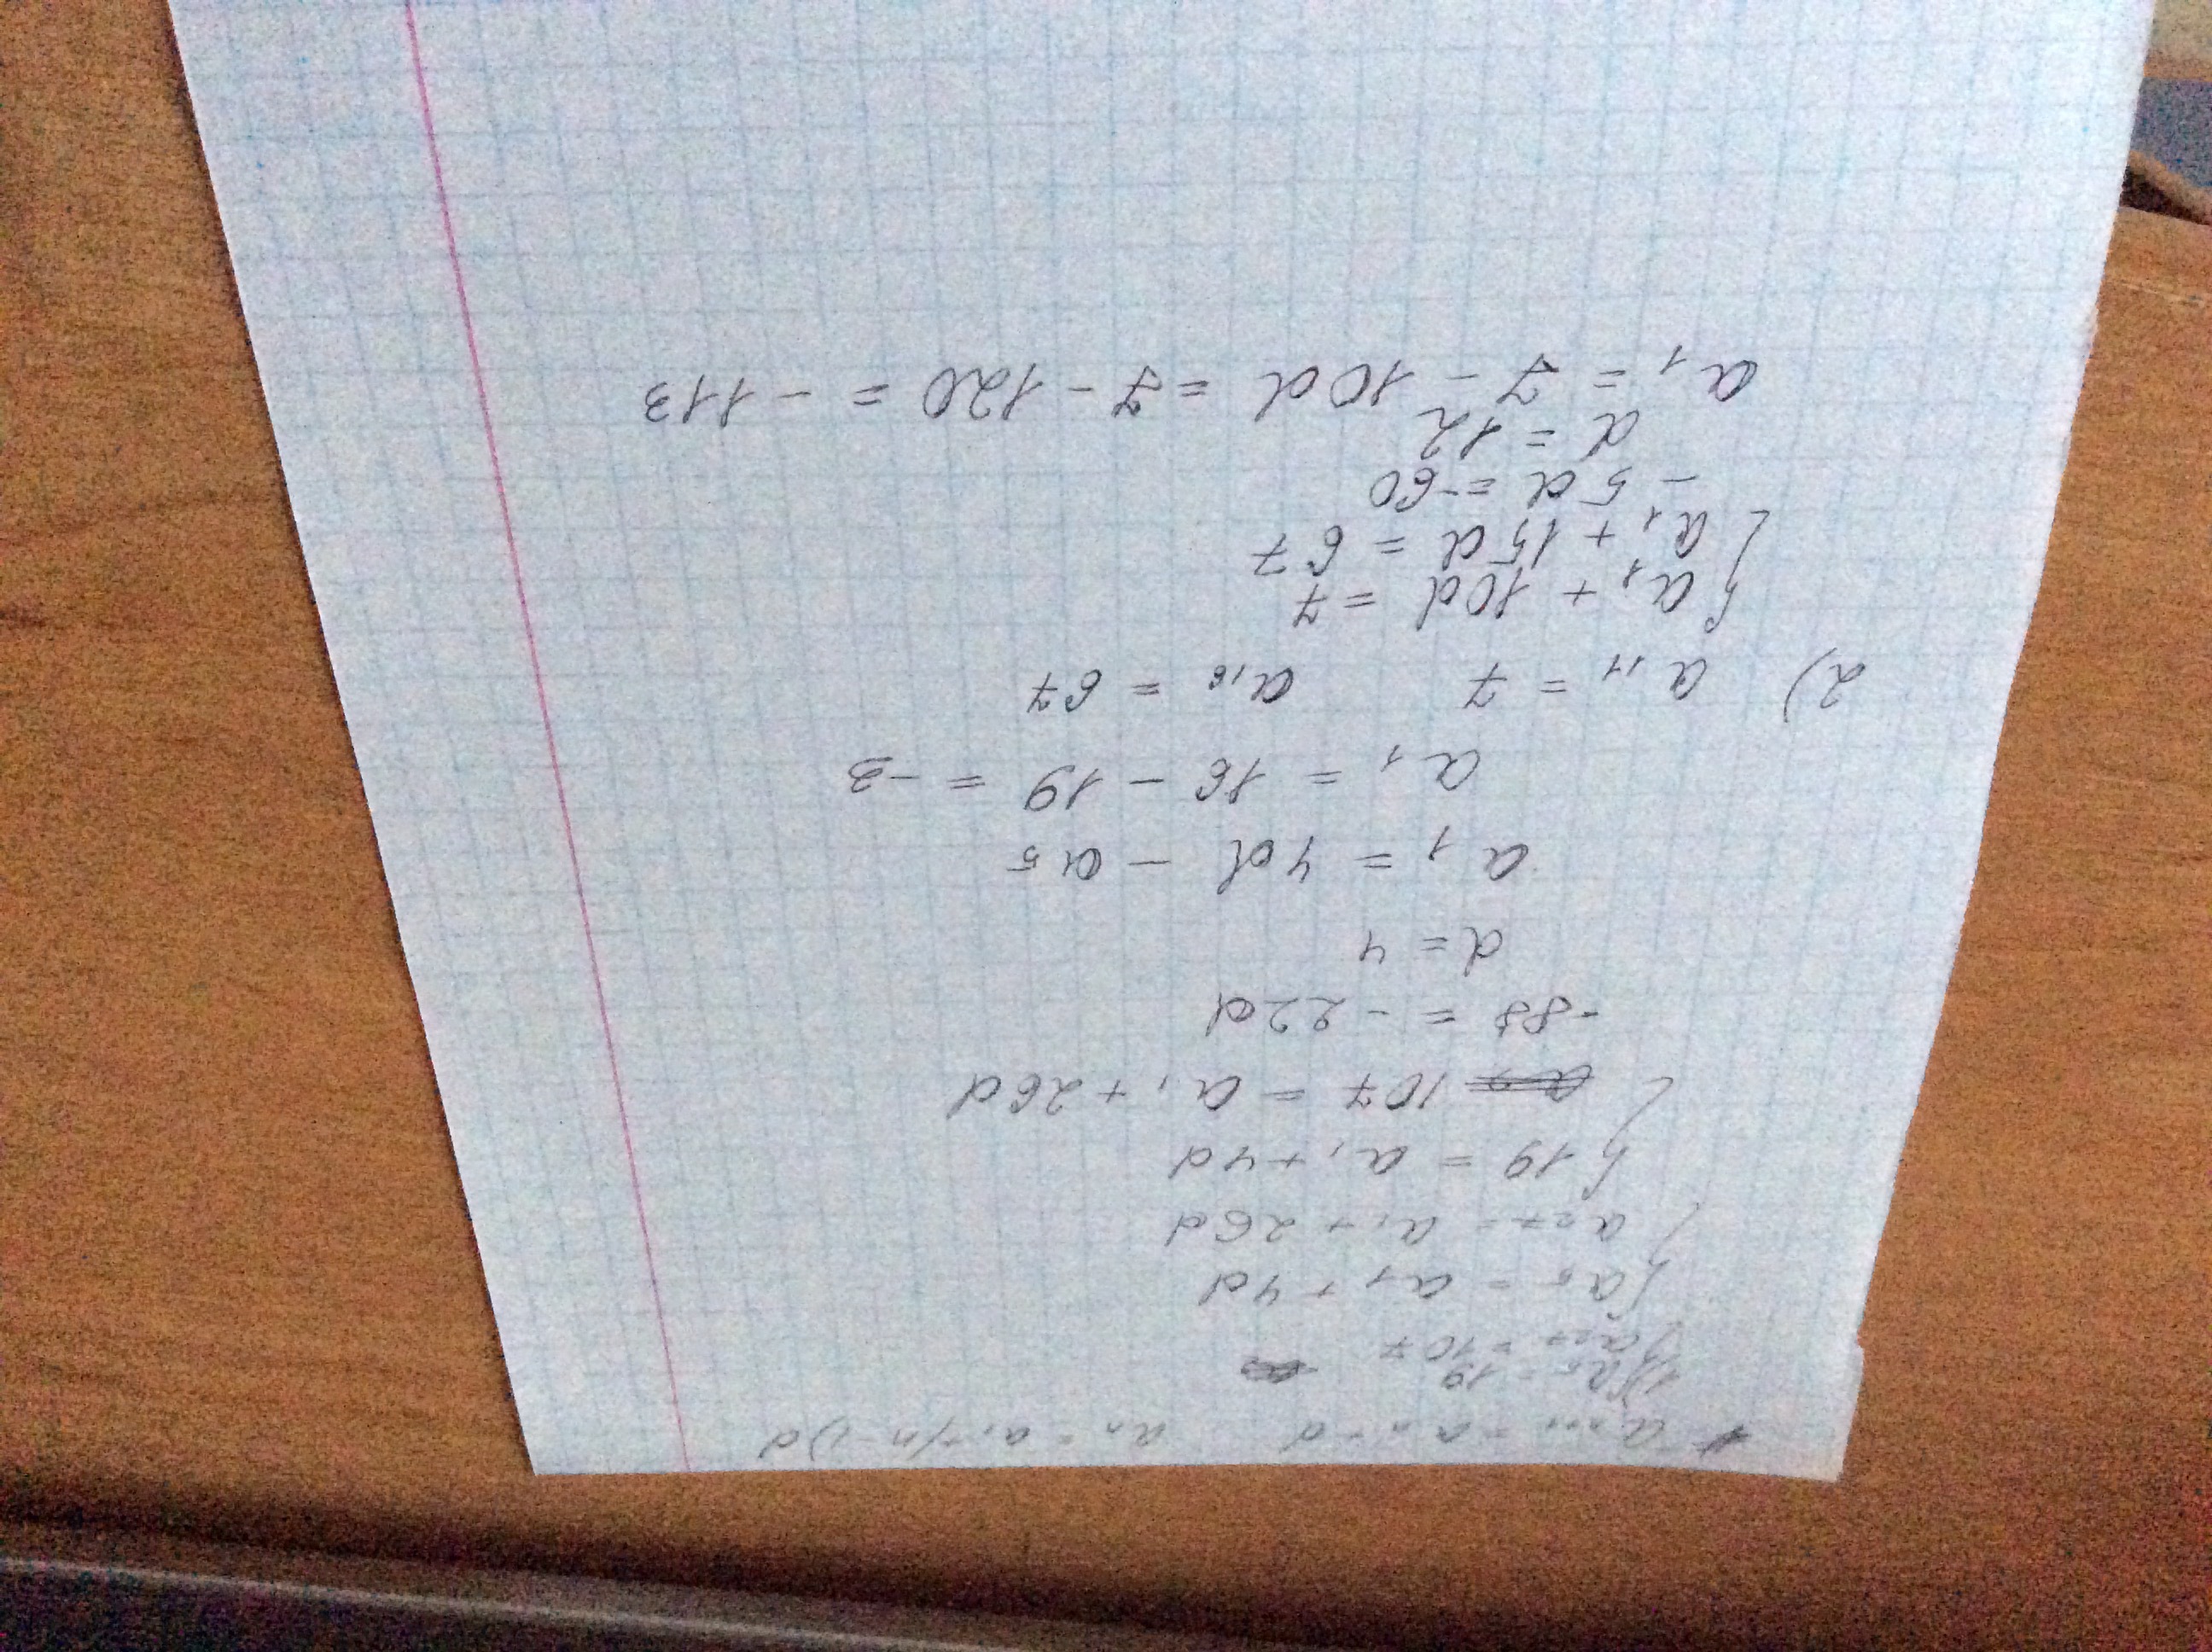 a n+1 = a n + d a n = a 1 + (n-1)d
1) { a 5 = 19
a 27 = 107
{ a 5 = a 1 + 4d
a 27 = a 1 + 26d
{ 19 = a 1 + 4d
107 = a 1 + 26d
-88 = -22d
d = 4
a 1 = 4d - a 5
a 1 = 16 - 19 = -3
2) a 11 = 7 a 16 = 67
{ a 1 + 10d = 7
a 1 + 15d = 67
- 5d = -60
d = 12
a 1 = 7 - 10d = 7 - 120 = -113